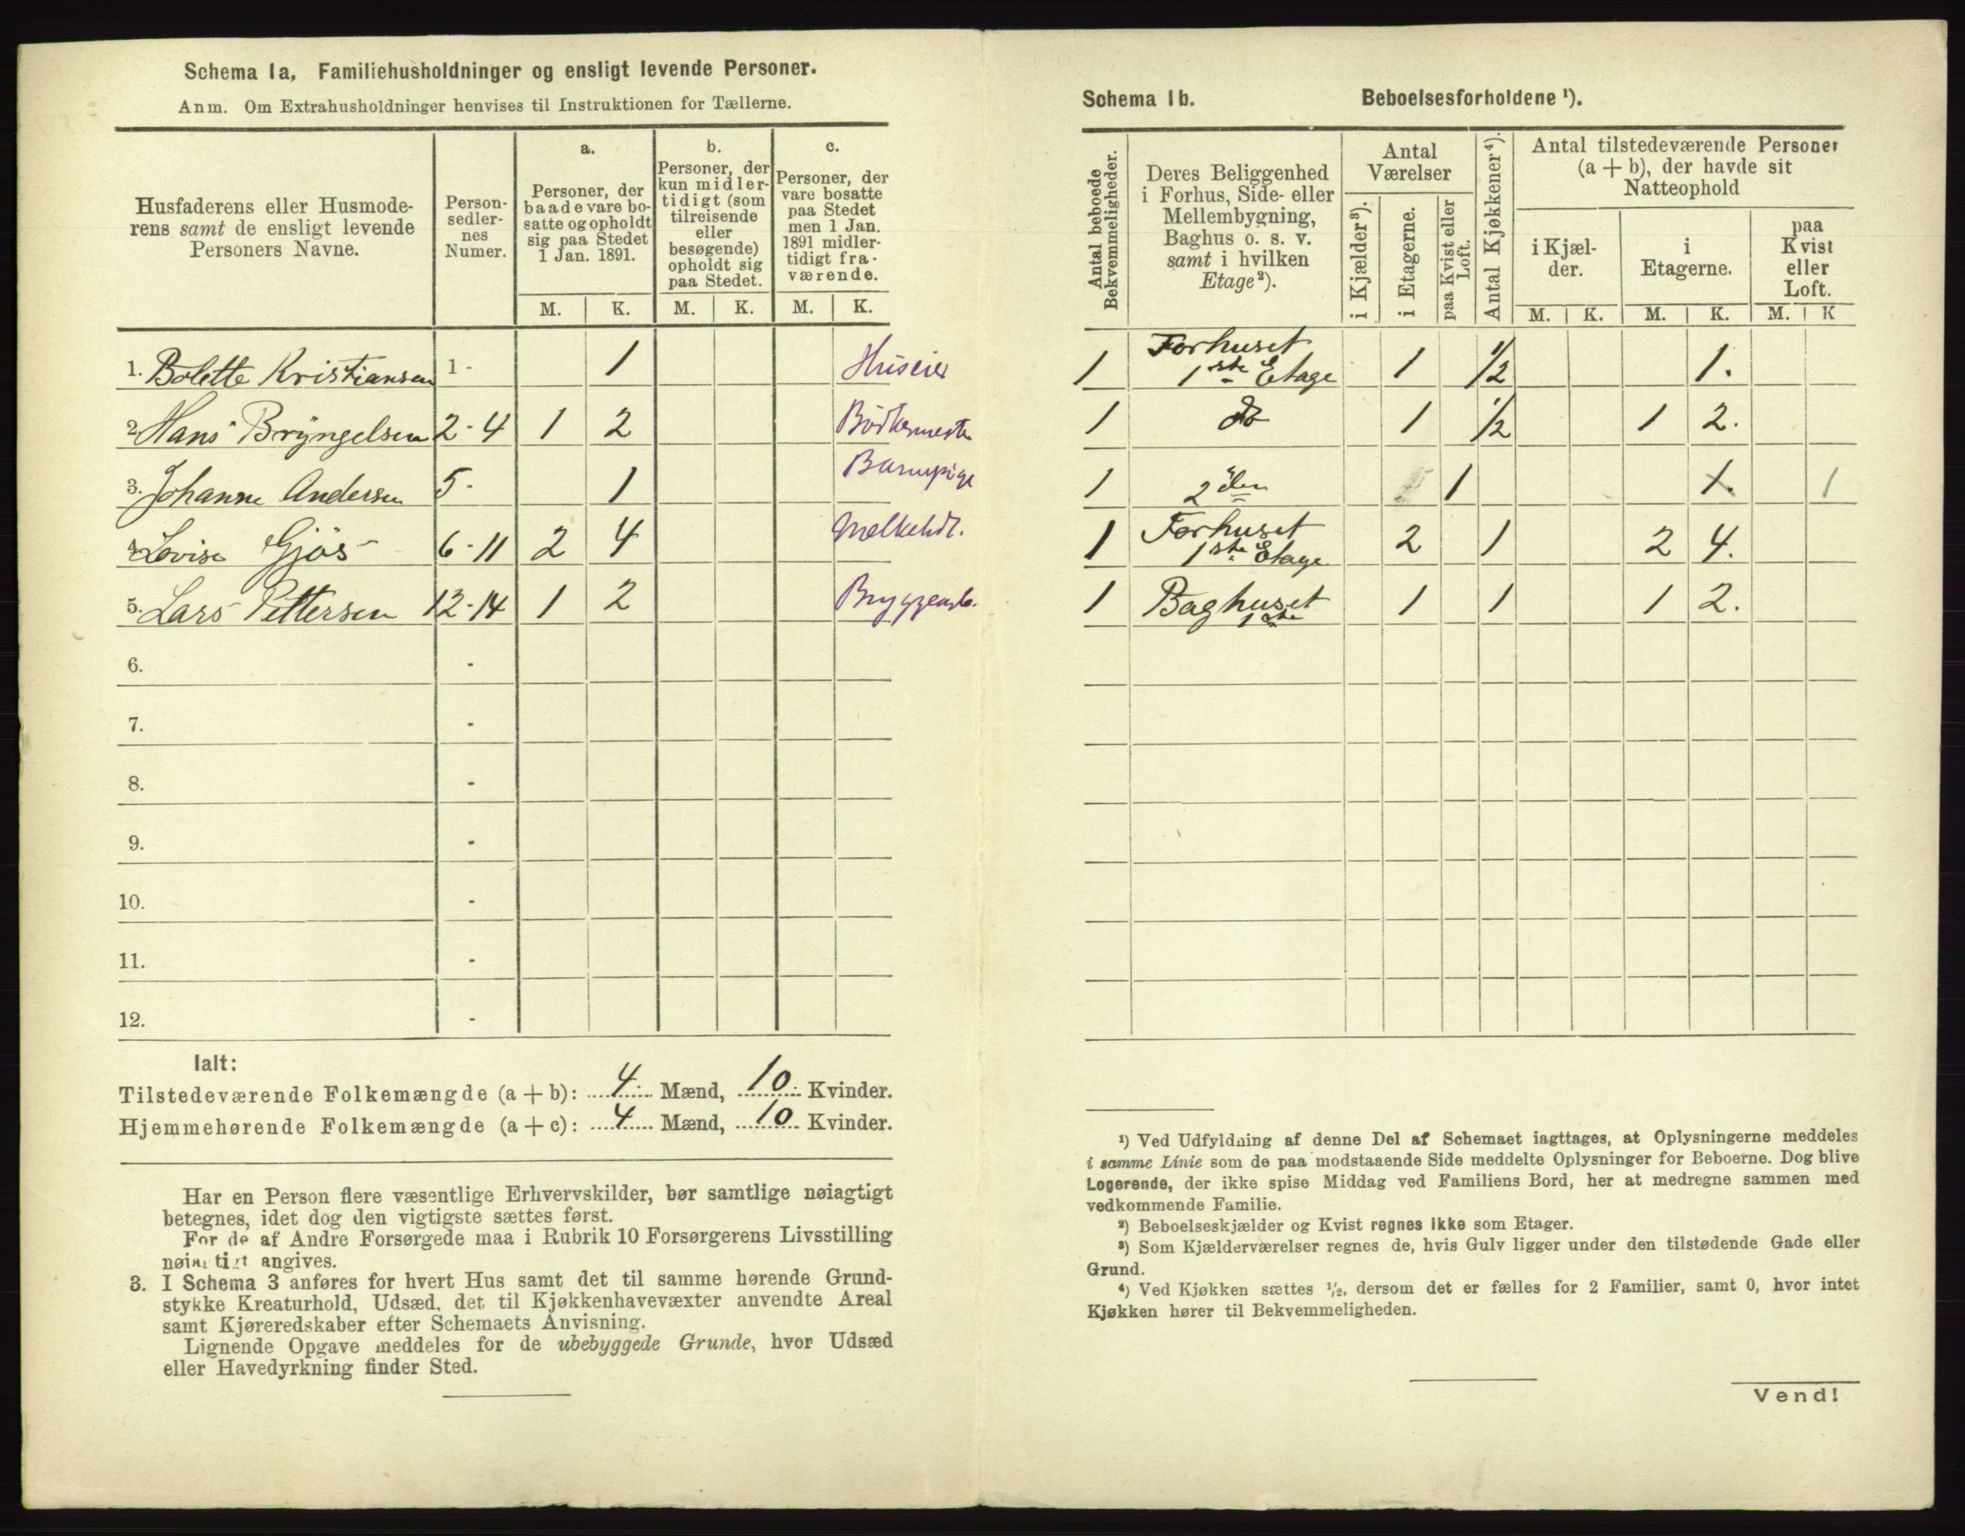 Schema 1a, Familiehusholdninger og ensligt levende Personer.
Anm. Om Extrahusholdninger henvises til Instruktionen for Tællerne.
Husfaderens eller Husmode-
rens samt de ensligt levende
Personers Navne.
Person-
sedler-
nes
Numer.
a.
Personer, der
baade vare bo-
satte og opholdt
sig paa Stedet
1 Jan. 1891.
b.
Personer, der
kun midler-
tidigt (som
tilreisende
eller
besøgende)
opholdt sig
paa Stedet.
c.
Personer, der
vare bosatte
paa Stedet
men 1 Jan.
1891 midler-
tidigt fra-
værende.
M. K. M. K. M. K.
1. Bolette Kristiansen 1 - 1 Huseier
2. Hans Bryngelsen 2 - 4 1 2 Bødkermester
3. Johanne Andersen 5 - 1 Barnepige
4. Lovise Gjøs 6 - 11 2 4 Melkehdl.
5. Lars Pettersen 12 - 14 1 2 Bryggearb.
6. -
7. -
8. -
9. -
10. -
11. -
12. -
Ialt:
Tilstedeværende Folkemængde (a + b): 4 Mænd, 10 Kvinder.
Hjemmehørende Folkemængde (a + c): 4 Mænd, 10 Kvinder.
Har en Person flere væsentlige Erhvervskilder, bør samtlige nøiagtigt
betegnes, idet dog den vigtigste sættes først.
For de af Andre Forsørgede maa i Rubrik 10 Forsørgerens Livsstilling
nøiagtigt angives.
3. I Schema 3 anføres for hvert Hus samt det til samme hørende Grund-
stykke Kreaturhold, Udsæd, det til Kjøkkenhavevæxter anvendte Areal
samt Kjøreredskaber efter Schemaets Anvisning.
Lignende Opgave meddeles for de ubebyggede Grunde, hvor Udsæd
eller Havedyrkning finder Sted.
Schema 1b. Beboelsesforholdene ¹).
Antal beboede
Bekvemmeligheder.
Deres Beliggenhed
i Forhus, Side- eller
Mellembygning,
Baghus o. s. v.
samt i hvilken
Etage²).
Antal
Værelser
i Kjælder³).
i Etagerne.
paa Kvist eller
Loft.
Antal Kjøkkener⁴).
Antal tilstedeværende Personer
(a + b), der havde sit
Natteophold
i Kjæl-
der.
i
Etagerne.
paa
Kvist
eller
Loft.
M. K. M. K. M. K
1 Forhuset
1ste Etage 1 1/2 1.
1 do 1 1/2 1 2.
1 2den 1 1. 1
1 Forhuset
1ste Etage 2 1 2 4.
1 Baghuset
1ste 1 1 1 2.
¹) Ved Udfyldning af denne Del af Schemaet iagttages, at Oplysningerne meddeles
i samme Linie som de paa modstaaende Side meddelte Oplysninger for Beboerne. Dog blive
Logerende, der ikke spise Middag ved Familiens Bord, her at medregne sammen med
vedkommende Familie.
²) Beboelseskjælder og Kvist regnes ikke som Etager.
³) Som Kjælderværelser regnes de, hvis Gulv ligger under den tilstødende Gade eller
Grund.
⁴) Ved Kjøkken sættes ½, dersom det er fælles for 2 Familier, samt 0, hvor intet
Kjøkken hører til Bekvemmeligheden.
Vend!